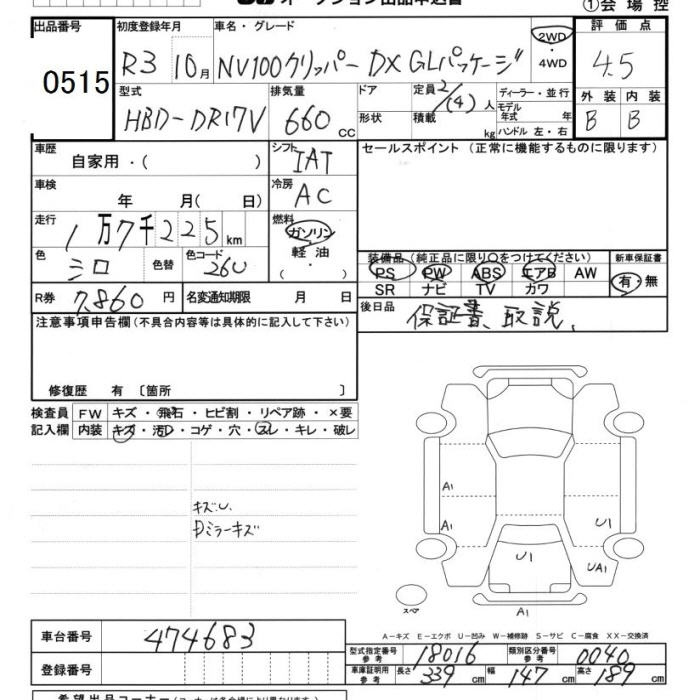 オークション出品申込書
①会場控
出品番号 初度登録年月 車名・グレード 評価点
0515 R3 10月 NV100クリッパー DX GLパッケージ 2WD ・ 4WD 4.5
型式 排気量 ドア 定員 2/(4)人 ディーラー・並行 外装 内装
HBD-DR17V 660cc 形状 積載 kg モデル年式 年 ハンドル 左・右 B B
車歴 自家用・( ) シフト IAT セールスポイント (正常に機能するものに限ります)
車検 年 月( 日) 冷房 AC
走行 1万7千225km 燃料 ガソリン
色 シロ 色替 色コード 26U 軽油 ・ 装備品 (純正品に限り○をつけてください) 新車保証書
PS PW ABS エアB AW 有・無
SR ナビ TV カワ
R券 7,860円 名変通知期限 月 日 後日品 保証書、取説、
注意事項申告欄(不具合内容等は具体的に記入して下さい)
修復歴 有 〔箇所 〕
検査員 FW キズ・飛石・ヒビ割・リペア跡・×要
記入欄 内装 キズ・汚レ・コゲ・穴・スレ・キレ・破レ
キズU.
Dミラーキズ
A1
A1
U1
U1
UA1
スペア
A1
A-キズ E-エクボ U-凹み W-補修跡 S-サビ C-腐食 XX-交換済
車台番号 474683
型式指定番号 参考 18016 類別区分番号 参考 0040
登録番号
車庫証明用 参考 長さ 339cm 幅 147cm 高さ 189cm
希望出品コーナー